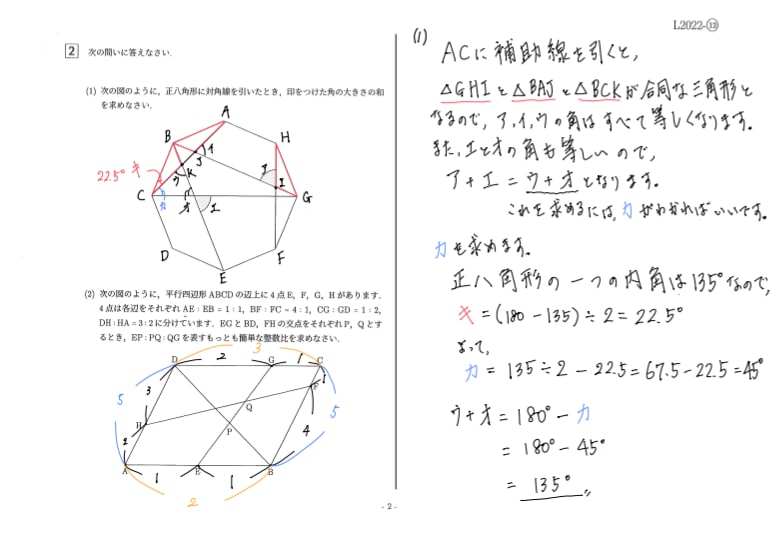 L2022-⑫
2 次の問いに答えなさい.
(1) 次の図のように，正八角形に対角線を引いたとき，印をつけた角の大きさの和
を求めなさい.
A
B
H
イ
J
K
ウ
22.5° キ
C
カ
オ
エ
I
G
D
F
E
(2) 次の図のように，平行四辺形 ABCD の辺上に 4 点 E，F，G，H があります.
4 点は各辺をそれぞれ AE : EB = 1 : 1，BF : FC = 4 : 1，CG : GD = 1 : 2,
DH : HA = 3 : 2 に分けています. EG と BD，FH の交点をそれぞれ P，Q とす
るとき，EP : PQ : QG を表すもっとも簡単な整数比を求めなさい.
3
D 2 G 1 C
F 1
3
5
Q
5
H
4
P
2
A E B
1 1
2
- 2 -
(1)
ACに補助線を引くと,
△GHIと△BAJと△BCKが合同な三角形と
なるので, ア,イ,ウの角はすべて等しくなります.
また,エとオの角も等しいので,
ア+エ = ウ+オとなります.
これを求めるには,カがわかればいいです.
カを求めます.
正八角形の一つの内角は135°なので,
キ = (180 − 135) ÷ 2 = 22.5°
よって,
カ = 135 ÷ 2 − 22.5 = 67.5 − 22.5 = 45°
ウ+オ = 180° − カ
= 180° − 45°
= 135°